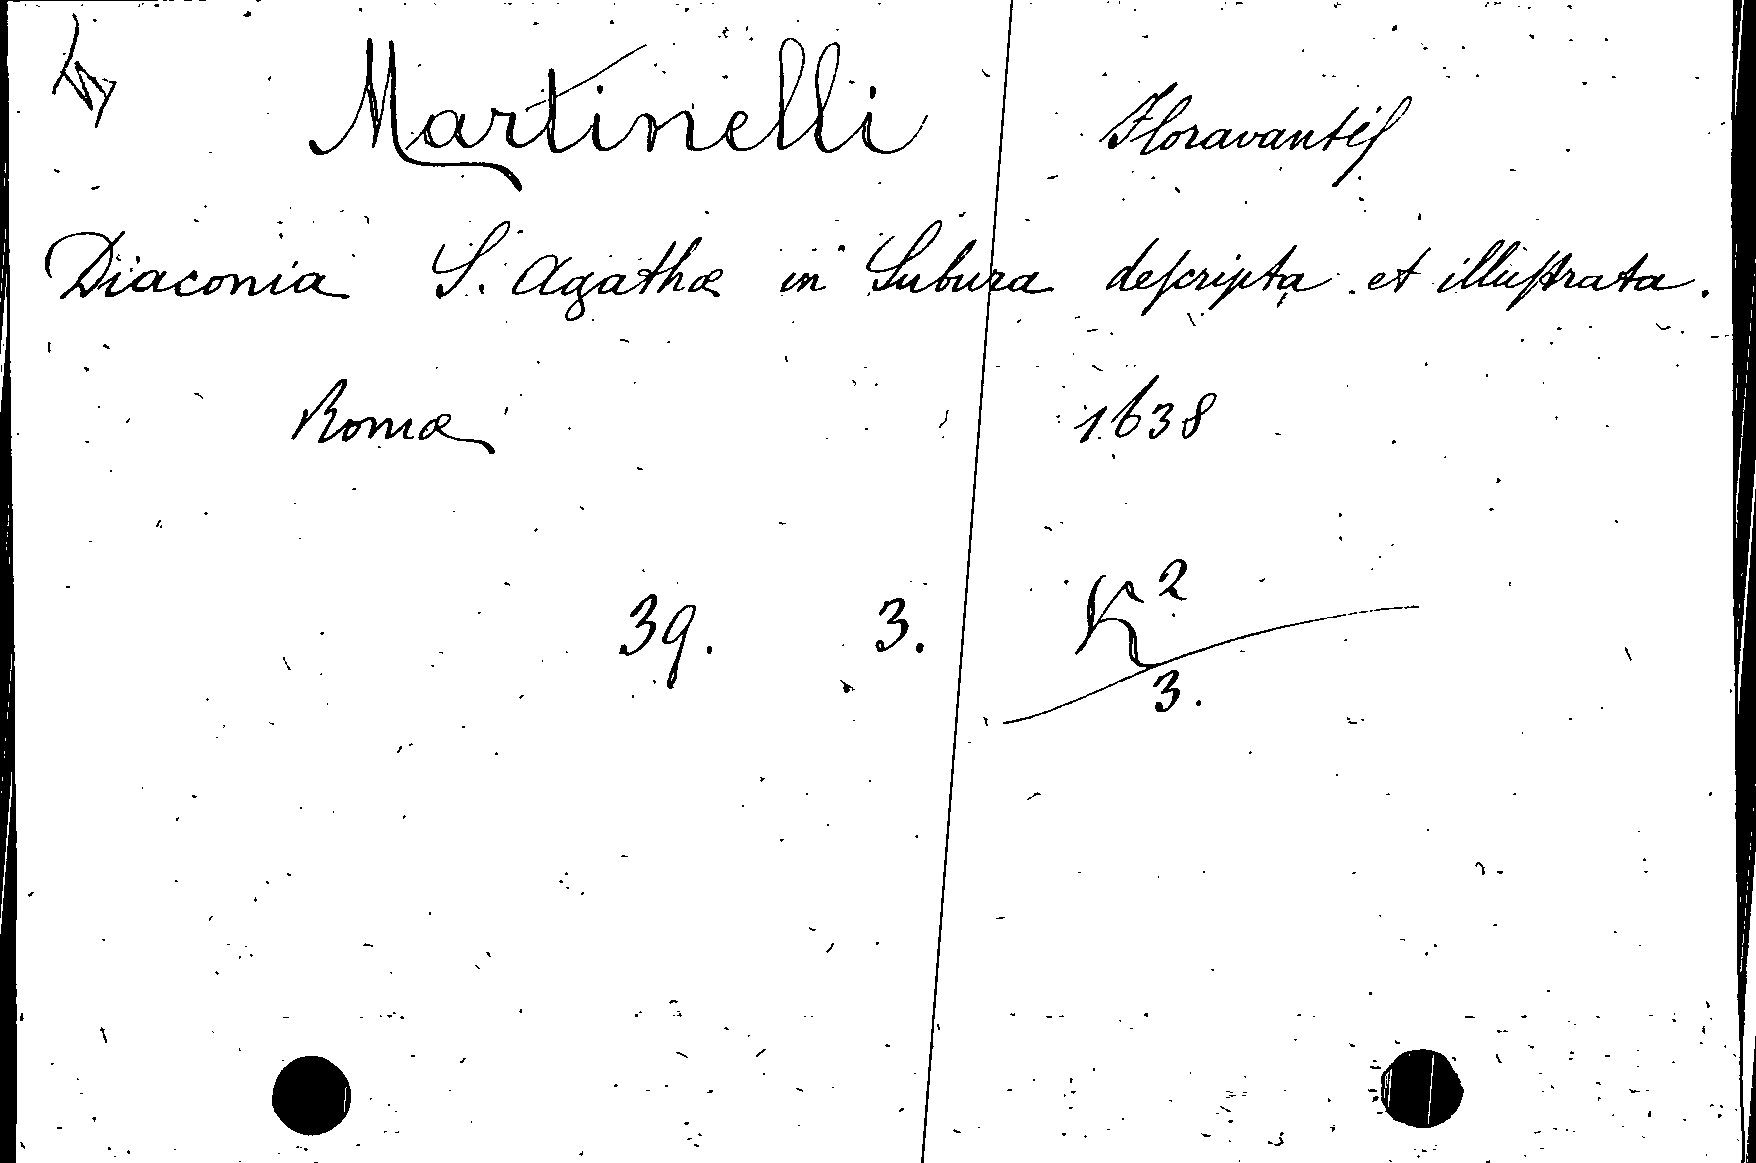 Martinelli Floravantes
Diaconia S. Agathæ in Subura descripta et illustrata.
Romæ 1638
39. 3. K²
3.